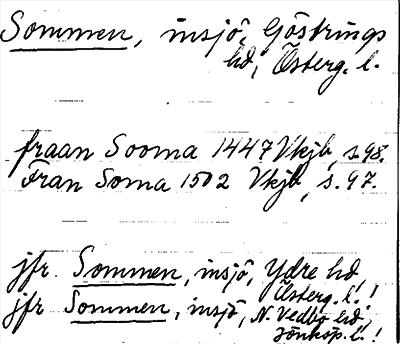 Sommen, insjö, Göstrings
hd, Österg. l.
fraan Sooma 1447 Vkjb, s. 98.
Fran Soma 1502 Vkjb, s. 97.
jfr. Sommen, insjö, Ydre hd,
Österg. l.!
jfr Sommen, insjö, N. Vedbo hd,
Jönköp. l.!